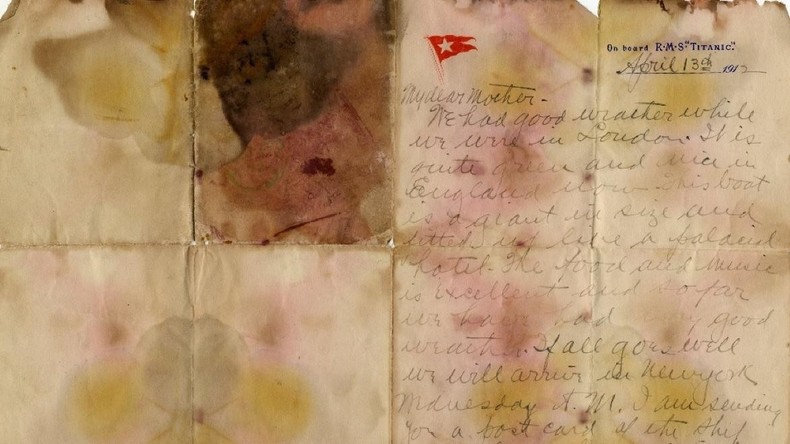 On board R·M·S. "TITANIC."
April 13th 1912
My dear Mother -
We had good weather while
we were in London. It is
quite green and nice in
England now. This boat
is a giant in size and
fitted up like a palacial
hotel. The food and music
is excellent and so far
we have had very good
weather. If all goes well
we will arrive in New York
Wednesday A.M. I am sending
you a post card of the ship